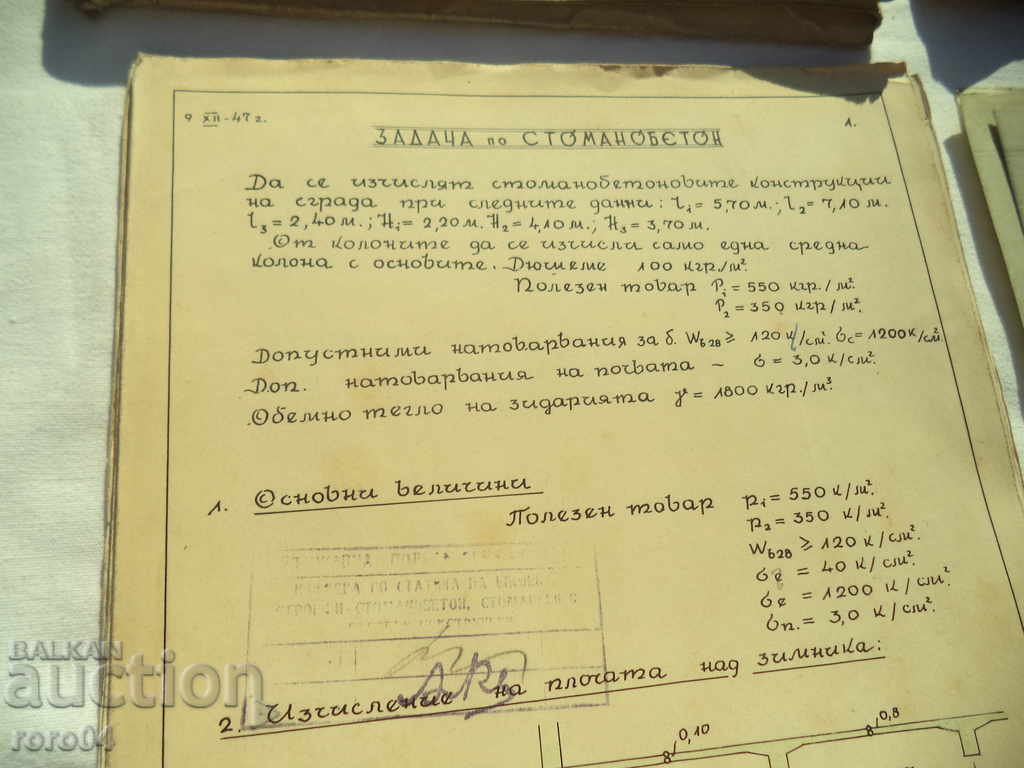 9 XII - 47 г.
1.
ЗАДАЧА по СТОМАНОБЕТОН
Да се изчислят стоманобетоновите конструкции
на сграда при следните данни: l₁ = 5,70 м.; l₂ = 7,10 м.
l₃ = 2,40 м.; H₁ = 2,20 м. H₂ = 4,10 м.; H₃ = 3,70 м.
От колоните да се изчисли само една средна
колона с основите. Дюшеме 100 кгр./м².
Полезен товар P₁ = 550 кгр./м².
P₂ = 350 кгр/м².
Допустними натоварвания за б. Wб28 ≥ 120 к/см². σc = 1200 к/см²
Доп. натоварвания на почвата – σ = 3,0 к/см².
Обемно тегло на зидарията γ = 1800 кгр./м³.
1. Основни величини
Полезен товар p₁ = 550 к/м².
p₂ = 350 к/м².
Wб28 ≥ 120 к/см².
= 40 к/см².
= 1200 к/см².
σп. = 3,0 к/см².
СТОМАНОБЕТОН,
2. Изчисление на плочата над зимника:
0,10
0,8
BALKAN
auction
roro04